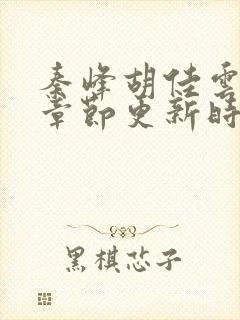 秦峰胡佳雲
章節更新時
黑棋芯子